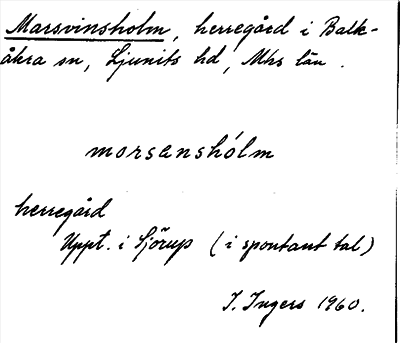 Marsvinsholm, herregård i Balk-
åkra sn, Ljunits hd, Mhs län.
morsenshólm
herregård
Uppt. i Sjörup (i spontant tal)
I. Ingers 1960.